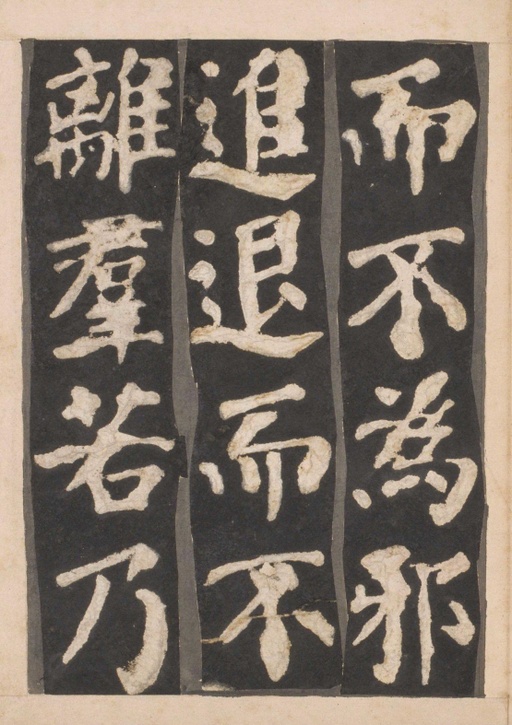 而不為邪
進退而不
離羣若乃